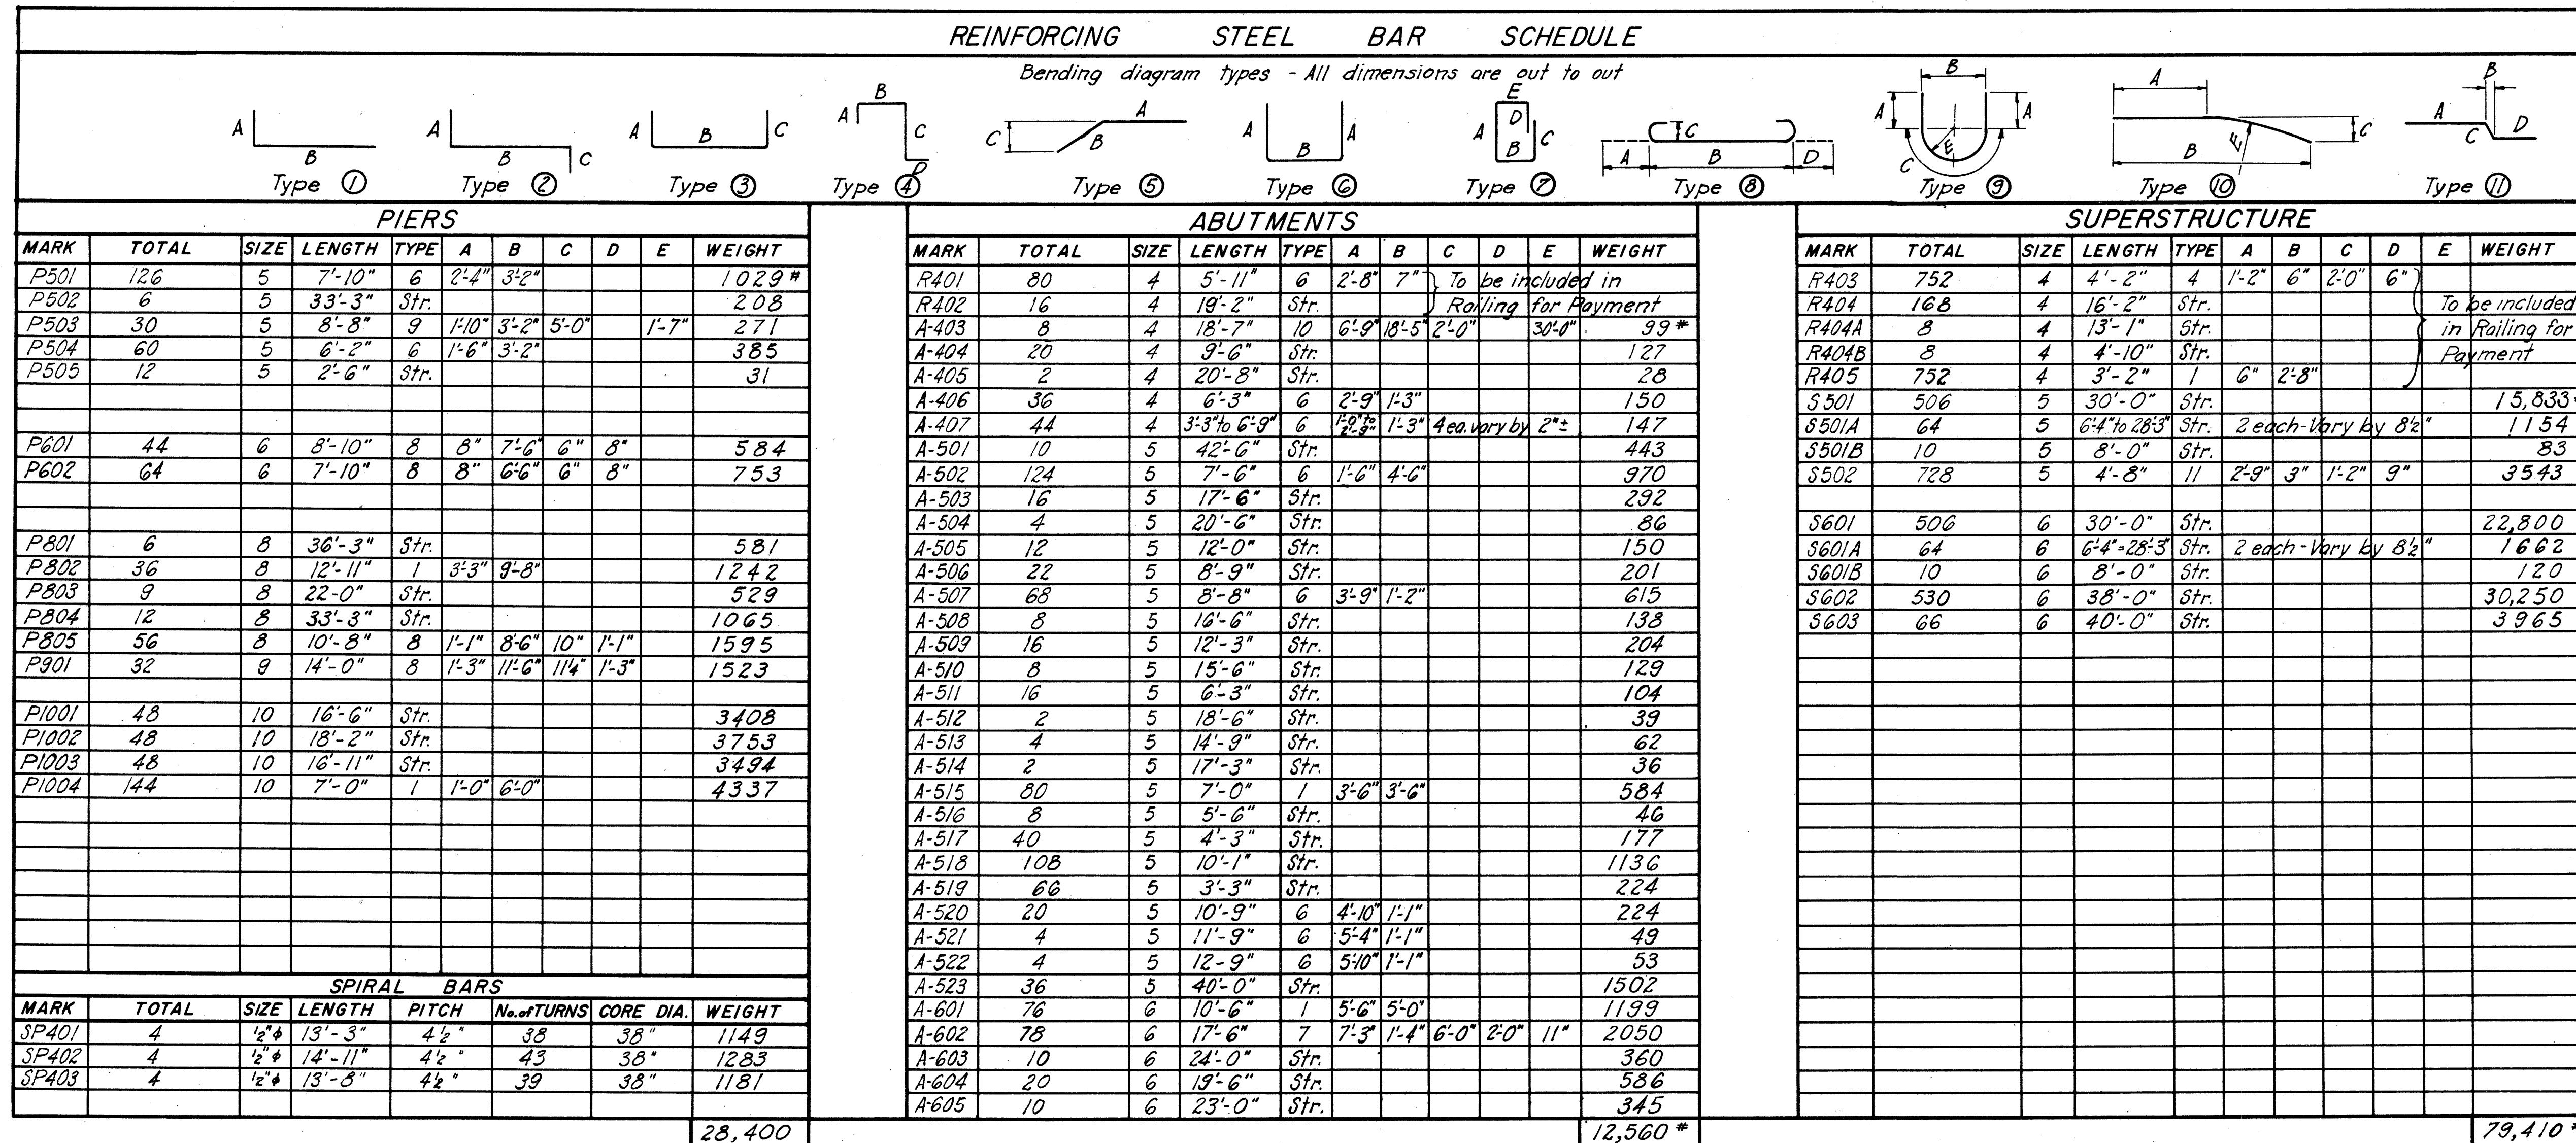 REINFORCING STEEL BAR SCHEDULE
Bending diagram types - All dimensions are out to out
A B Type ①
A B C Type ②
A B C Type ③
A B C D Type ④
A B C Type ⑤
A B A Type ⑥
A B C D E Type ⑦
A B C D Type ⑧
A B A C E Type ⑨
A B C E Type ⑩
A B C D Type ⑪
PIERS
MARK TOTAL SIZE LENGTH TYPE A B C D E WEIGHT
P501 126 5 7'-10" 6 2'-4" 3'-2" 1029#
P502 6 5 33'-3" Str. 208
P503 30 5 8'-8" 9 1'-10" 3'-2" 5'-0" 1'-7" 271
P504 60 5 6'-2" 6 1'-6" 3'-2" 385
P505 12 5 2'-6" Str. 31
P601 44 6 8'-10" 8 8" 7'-6" 6" 8" 584
P602 64 6 7'-10" 8 8" 6'-6" 6" 8" 753
P801 6 8 36'-3" Str. 581
P802 36 8 12'-11" 1 3'-3" 9'-8" 1242
P803 9 8 22-0" Str. 529
P804 12 8 33'-3" Str. 1065
P805 56 8 10'-8" 8 1'-1" 8'-6" 10" 1'-1" 1595
P901 32 9 14'-0" 8 1'-3" 11'-6" 11¼" 1'-3" 1523
P1001 48 10 16'-6" Str. 3408
P1002 48 10 18'-2" Str. 3753
P1003 48 10 16'-11" Str. 3494
P1004 144 10 7'-0" 1 1'-0" 6'-0" 4337
SPIRAL BARS
MARK TOTAL SIZE LENGTH PITCH No.of TURNS CORE DIA. WEIGHT
SP401 4 ½"ϕ 13'-3" 4½" 38 38" 1149
SP402 4 ½"ϕ 14'-11" 4½" 43 38" 1283
SP403 4 ½"ϕ 13'-8" 4½" 39 38" 1181
28,400
ABUTMENTS
MARK TOTAL SIZE LENGTH TYPE A B C D E WEIGHT
R401 80 4 5'-11" 6 2'-8" 7" To be included in
R402 16 4 19'-2" Str. Railing for Payment
A-403 8 4 18'-7" 10 6'-9" 18'-5" 2'-0" 30'-0" 99#
A-404 20 4 9'-6" Str. 127
A-405 2 4 20'-8" Str. 28
A-406 36 4 6'-3" 6 2'-9" 1'-3" 150
A-407 44 4 3'-3" to 6'-9" 6 1'-0" to 2'-9" 1'-3" 4 ea. vary by 2"± 147
A-501 10 5 42'-6" Str. 443
A-502 124 5 7'-6" 6 1'-6" 4'-6" 970
A-503 16 5 17'-6" Str. 292
A-504 4 5 20'-6" Str. 86
A-505 12 5 12'-0" Str. 150
A-506 22 5 8'-9" Str. 201
A-507 68 5 8'-8" 6 3'-9" 1'-2" 615
A-508 8 5 16'-6" Str. 138
A-509 16 5 12'-3" Str. 204
A-510 8 5 15'-6" Str. 129
A-511 16 5 6'-3" Str. 104
A-512 2 5 18'-6" Str. 39
A-513 4 5 14'-9" Str. 62
A-514 2 5 17'-3" Str. 36
A-515 80 5 7'-0" 1 3'-6" 3'-6" 584
A-516 8 5 5'-6" Str. 46
A-517 40 5 4'-3" Str. 177
A-518 108 5 10'-1" Str. 1136
A-519 66 5 3'-3" Str. 224
A-520 20 5 10'-9" 6 4'-10" 1'-1" 224
A-521 4 5 11'-9" 6 5'-4" 1'-1" 49
A-522 4 5 12-9" 6 5'-10" 1'-1" 53
A-523 36 5 40'-0" Str. 1502
A-601 76 6 10'-6" 1 5'-6" 5'-0" 1199
A-602 78 6 17'-6" 7 7'-3" 1'-4" 6'-0" 2'-0" 11" 2050
A-603 10 6 24'-0" Str. 360
A-604 20 6 19'-6" Str. 586
A-605 10 6 23'-0" Str. 345
12,560#
SUPERSTRUCTURE
MARK TOTAL SIZE LENGTH TYPE A B C D E WEIGHT
R403 752 4 4'-2" 4 1'-2" 6" 2'-0" 6"
R404 168 4 16'-2" Str. To be included
R404A 8 4 13'-1" Str. in Railing for
R404B 8 4 4'-10" Str. Payment
R405 752 4 3'-2" 1 6" 2'-8"
S501 506 5 30'-0" Str. 15,833
S501A 64 5 6'-4" to 28'-3" Str. 2 each-Vary by 8½" 1154
S501B 10 5 8'-0" Str. 83
S502 728 5 4'-8" 11 2'-9" 3" 1'-2" 9" 3543
S601 506 6 30'-0" Str. 22,800
S601A 64 6 6'-4"=28'-3" Str. 2 each-Vary by 8½" 1662
S601B 10 6 8'-0" Str. 120
S602 530 6 38'-0" Str. 30,250
S603 66 6 40'-0" Str. 3965
79,410